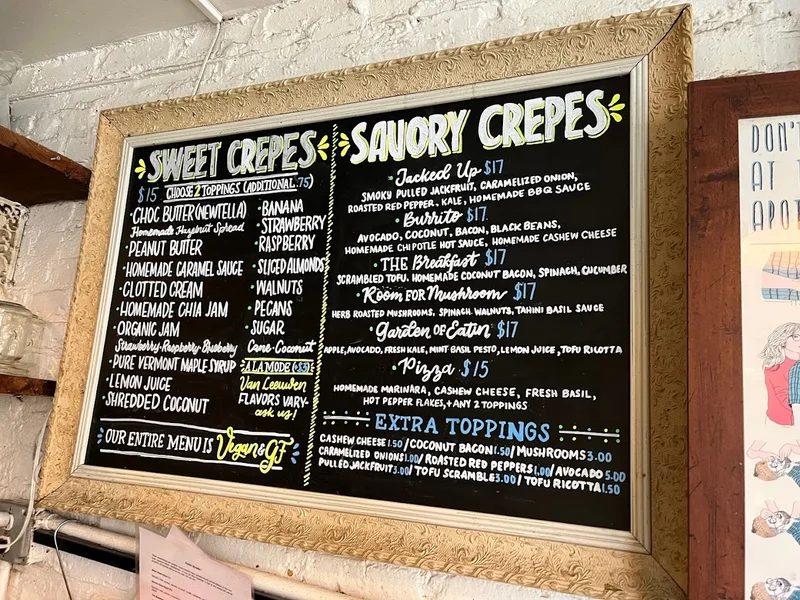 SWEET CREPES
$15 CHOOSE 2 TOPPINGS (ADDITIONAL .75)
• CHOC BUTTER (NEWTELLA)
Homemade Hazelnut Spread
• PEANUT BUTTER
• HOMEMADE CARAMEL SAUCE
• CLOTTED CREAM
• HOMEMADE CHIA JAM
• ORGANIC JAM
Strawberry-Raspberry-Blueberry
• PURE VERMONT MAPLE SYRUP
• LEMON JUICE
• SHREDDED COCONUT
• BANANA
• STRAWBERRY
• RASPBERRY
• SLICED ALMONDS
• WALNUTS
• PECANS
• SUGAR
Cane-Coconut
A LA MODE
Van Leeuwen
FLAVORS VARY-
ask us!
OUR ENTIRE MENU IS Vegan & GF
SAVORY CREPES
• Jacked Up $17
SMOKY PULLED JACKFRUIT, CARAMELIZED ONION,
ROASTED RED PEPPER, KALE, HOMEMADE BBQ SAUCE
• Burrito $17
AVOCADO, COCONUT, BACON, BLACK BEANS,
HOMEMADE CHIPOTLE HOT SAUCE, HOMEMADE CASHEW CHEESE
• THE Breakfast $17
SCRAMBLED TOFU, HOMEMADE COCONUT BACON, SPINACH, CUCUMBER
• Room FOR Mushroom $17
HERB ROASTED MUSHROOMS, SPINACH, WALNUTS, TAHINI BASIL SAUCE
• Garden OF Eatin' $17
APPLE, AVOCADO, FRESH KALE, MINT BASIL PESTO, LEMON JUICE, TOFU RICOTTA
• Pizza $15
HOMEMADE MARINARA, CASHEW CHEESE, FRESH BASIL,
HOT PEPPER FLAKES, + ANY 2 TOPPINGS
EXTRA TOPPINGS
CASHEW CHEESE 1.50 / COCONUT BACON 1.50 / MUSHROOMS 3.00
CARAMELIZED ONIONS 1.00 / ROASTED RED PEPPERS 1.00 / AVOCADO 5.00
PULLED JACKFRUIT 3.00 / TOFU SCRAMBLE 3.00 / TOFU RICOTTA 1.50
DON'T
AT